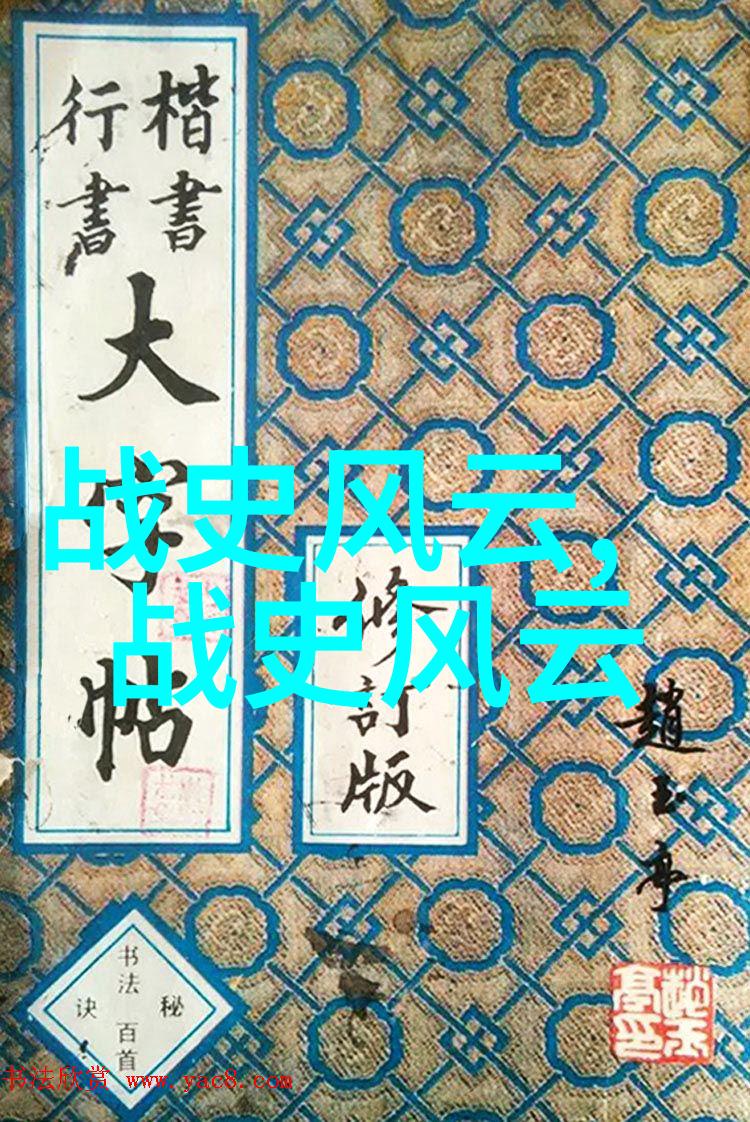 楷書
行書
大字帖
修訂版
战史风云,
战史风云
趙玉亭
书法
百首
秘
诀
书法欣赏 www.yac8.com